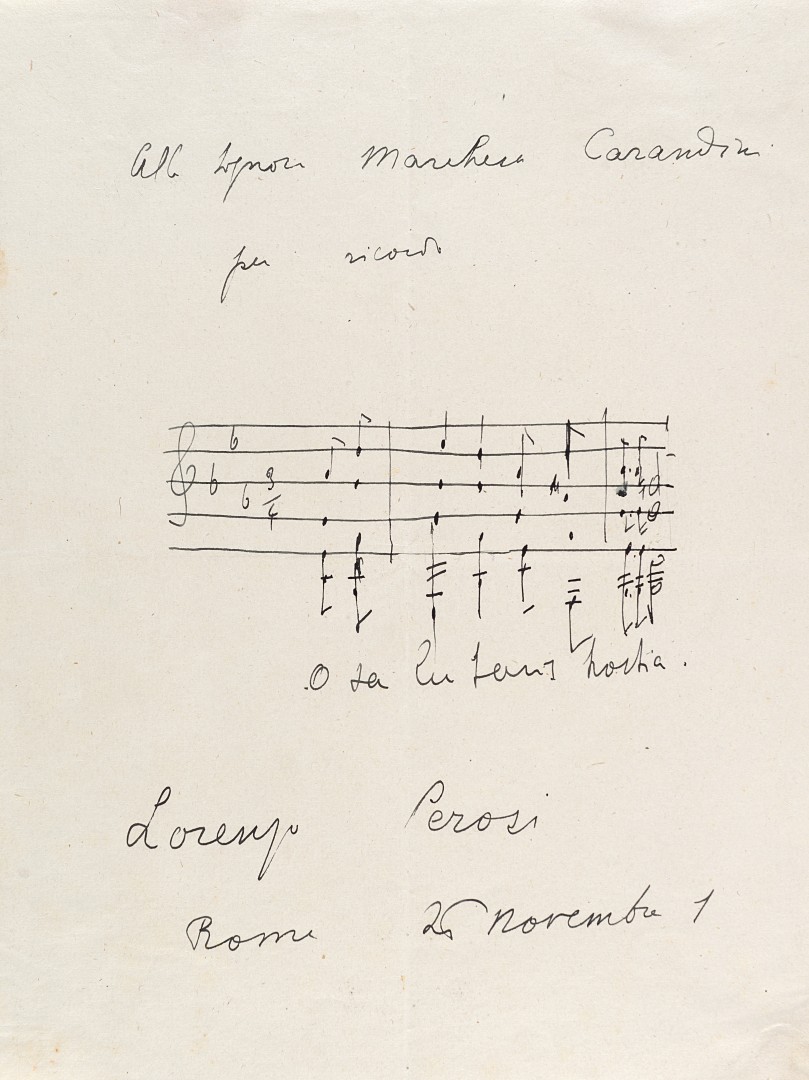 Alla Signora Marchesa Carandini
per ricordo
3
4
O sa lu taris hostia.
Lorenzo Perosi
Roma 25 novembre 1